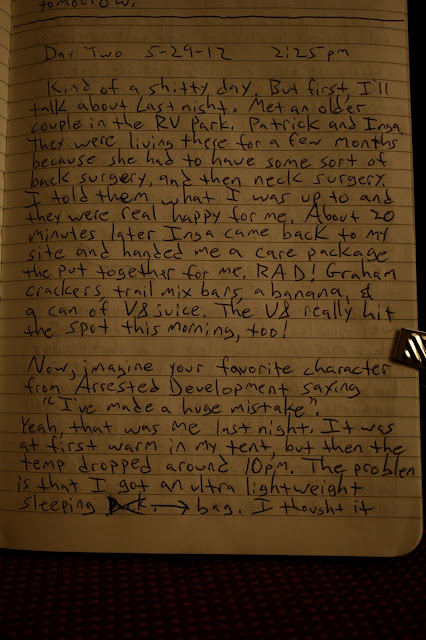 tomorrow.
Day Two 5-29-12 2:25pm
Kind of a shitty day. But first, I'll
talk about last night. Met an older
couple in the RV Park. Patrick and Inga.
They were living there for a few months
because she had to have some sort of
back surgery, and then neck surgery.
I told them what I was up to and
they were real happy for me. About 20
minutes later Inga came back to my
site and handed me a care package
the put together for me. RAD! Graham
crackers, trail mix bars, a banana, &
a can of V8 juice. The V8 really hit
the spot this morning, too!
Now, imagine your favorite character
from Arrested Development saying
"I've made a huge mistake".
Yeah, that was me last night. It was
at first warm in my tent, but then the
temp dropped around 10pm. The problem
is that I got an ultra lightweight
sleeping → bag. I thought it